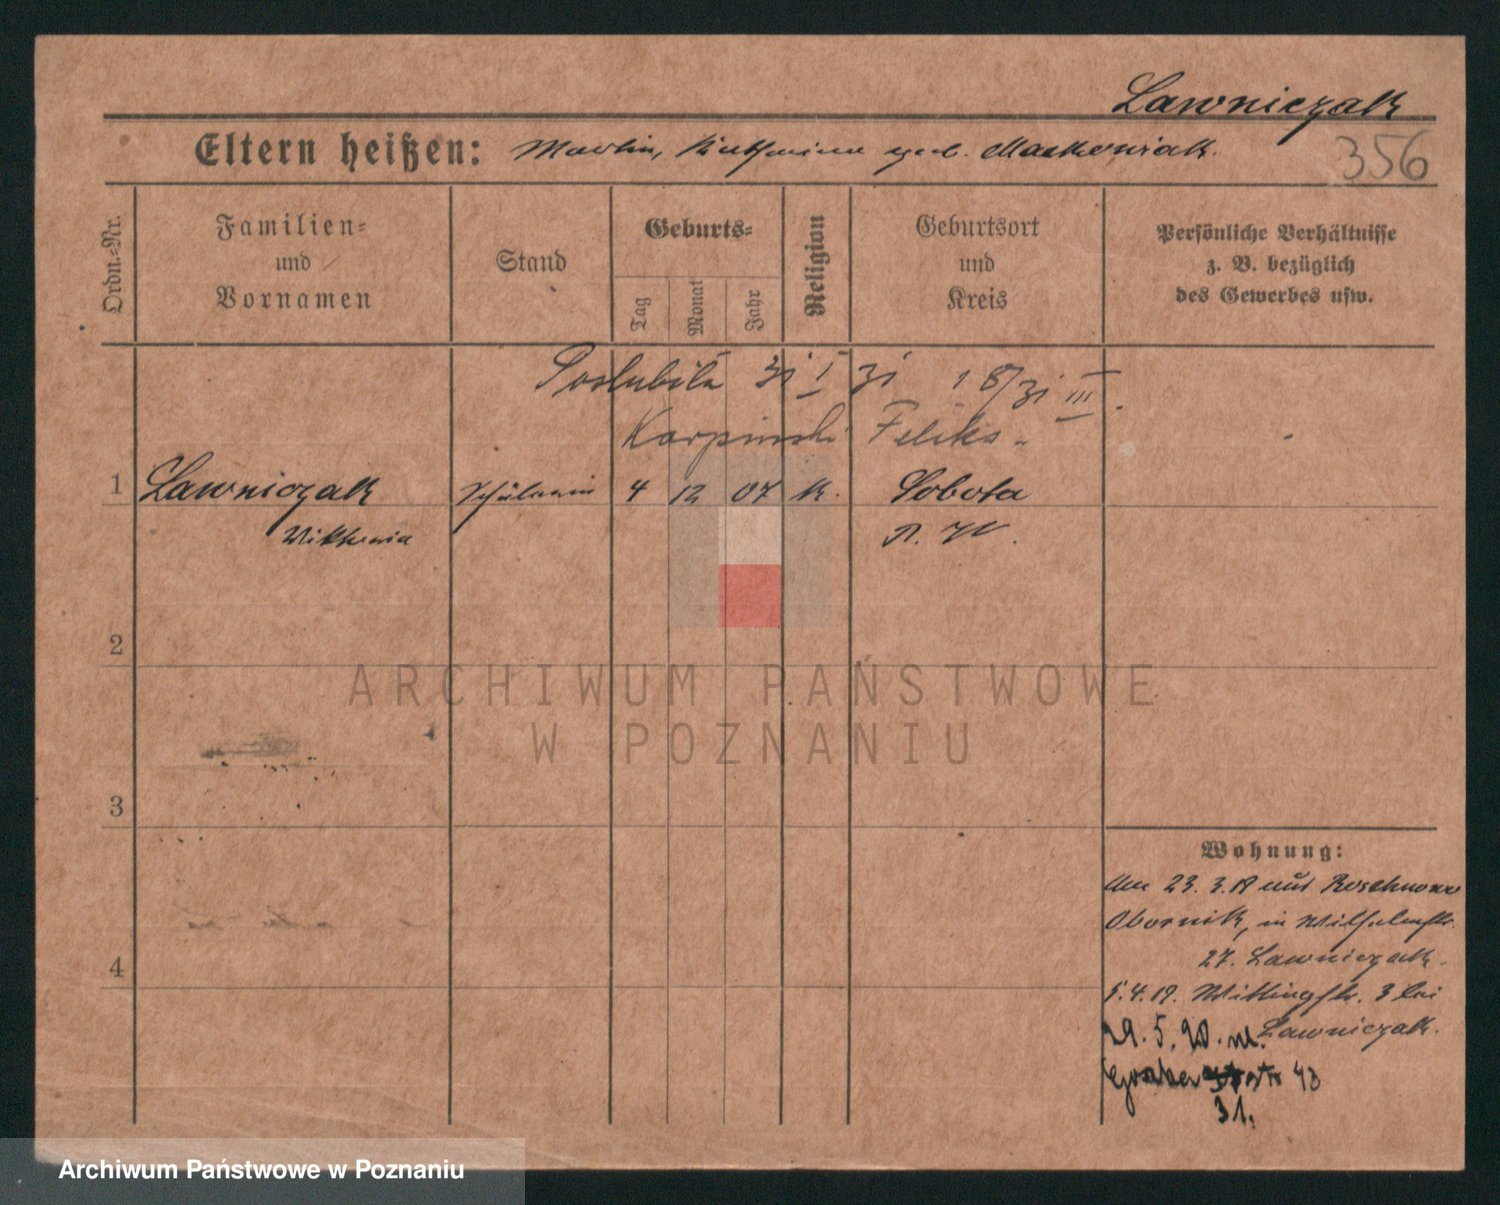 Lawniczak
Eltern heißen: Martin, Kathrina geb. Maekowiak.
356
Ordn.-Nr.
Familien-
und
Vornamen
Stand
Geburts-
Tag
Monat
Jahr
Religion
Geburtsort
und
Kreis
Persönliche Verhältnisse
z. B. bezüglich
des Gewerbes usw.
Poslubila 31 I 31 18/31 III.
Karpinski Feliks
1 Lawniczak Schülerin 4 12 07 k. Sobota
Wiktoria P. W.
2
ARCHIWUM PAŃSTWOWE
W POZNANIU
3
Wohnung:
Am 23.3.19 aus
Obornik, in Wilhelmstr.
27. Lawniczak.
5.4.19. Wittingstr. 3 bei
Lawniczak.
4
29. 5. 20. nl.
43
31.
Archiwum Państwowe w Poznaniu